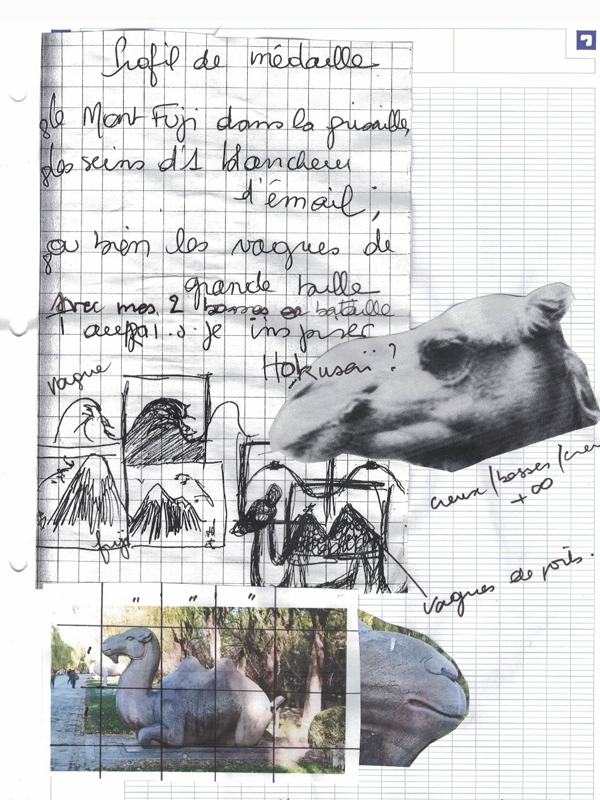 Profil de médaille
le Mont Fuji dans la grisaille,
des seins d'1 blancheur
d'émail ;
ou bien les vagues de
grande taille
Avec mes 2 bosses en bataille
aurai-je inspirer
Hokusaï ?
vague
fuji
creux/bosses/creux
+∞
vagues de poils.
" " "